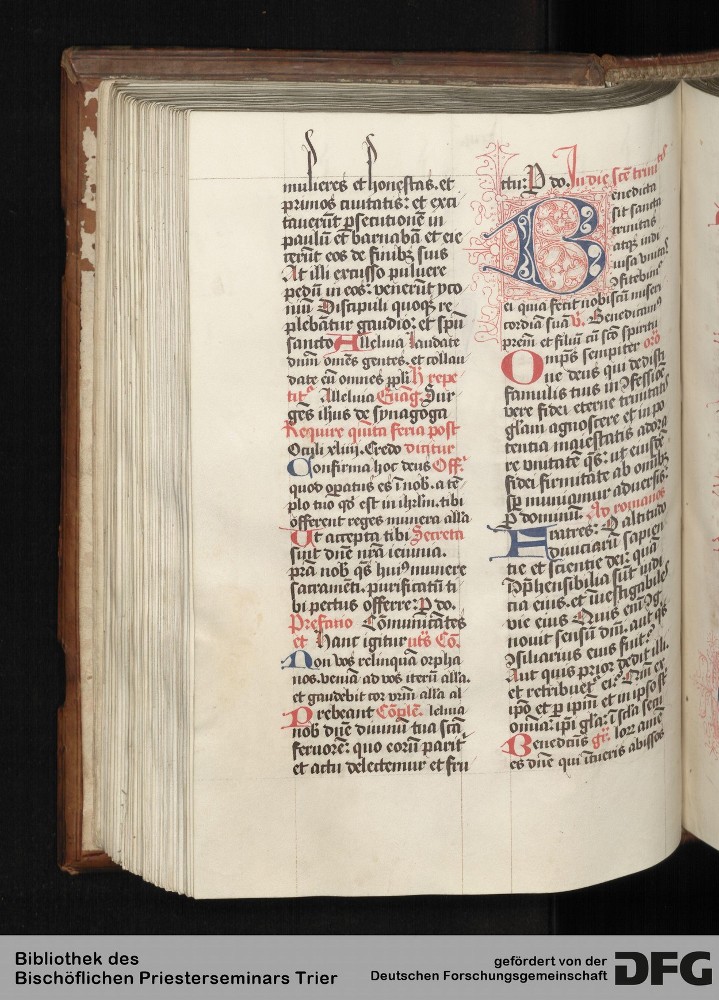 mulieres et honestas. et
primos ciuitatis: et exci
tauerūt ꝑsecutionē in
paulū et barnabā et eie
cerūt eos de finibꝫ suis
At illi excusso puluere
pedū in eos: venerūt yco
niū Discipuli quoqꝫ re
plebātur gaudio: et spū
sancto Alleluia laudate
dnm omēs gentes. et collau
date eū omnes ppli
Alleluia Euāg. Sur
gēs ihus de synagoga
Require quīta feria post
Oculi xliiii. Credo dicitur
Confirma hoc deus Off.
quod opatus es ī nob. a tē
plo tuo qd est in ihrlm. tibi
offerent reges munera alla
Ut accepta tibi Secreta
sint dnē nrā ieiunia.
prā nob qs huiꝰ munere
sacramēti. purificatū ti
bi pectus offerre: P do.
Prefatio Cōmunicātes
et Hanc igitur uts Cō.
Non vos relinquā orpha
nos. veniā ad vos iterū alla.
et gaudebit cor vrm alla al
Prebeant Cōple. leluia
nob dnē diuinū tua scā
feruorē: quo eorū parit
et actu delectemur et fru
ctu: P do. In die scē trini
Benedicta
sit sancta
trinitas
atqꝫ indi
uisa vnitaˢ
ꝯfitebimˀ
ei quia fecit nobiscū miseri
cordiā suā v. Benedicamꝰ
prēm et filiū cū scō spiritu
Omps sempiter oro
ne deus qui dedisti
famulis tuis in ꝯfessiōe
vere fidei eterne trinitatˢ
glam agnoscere et in po
tentia maiestatis adora
re vnitatē qs: ut eiusdē
fidei firmitate ab omibꝫ
sp muniamur aduersis:
P dominū. Ad romanos
Fratres: O altitudo
diuiciarū sapien
tie et sciencie dei: quā
ꝯp̄hensibilia sūt iudi
cia eius. et īuestigabiles
vie eius Quis enī ꝯg
nouit sensū dnī. aut qˢ
ꝯsiliarius eius fuit?
Aut quis prior dedit illi.
et retribuet ei? Qm̄ ex
ipō et p ipm̄ et in ipso sr̄
omia: ipi gla: ī scla seci
Benedcūs gr. lorr amē
es dnē qui ītueris abissos
Bibliothek des
Bischöflichen Priesterseminars Trier
gefördert von der
Deutschen Forschungsgemeinschaft DFG